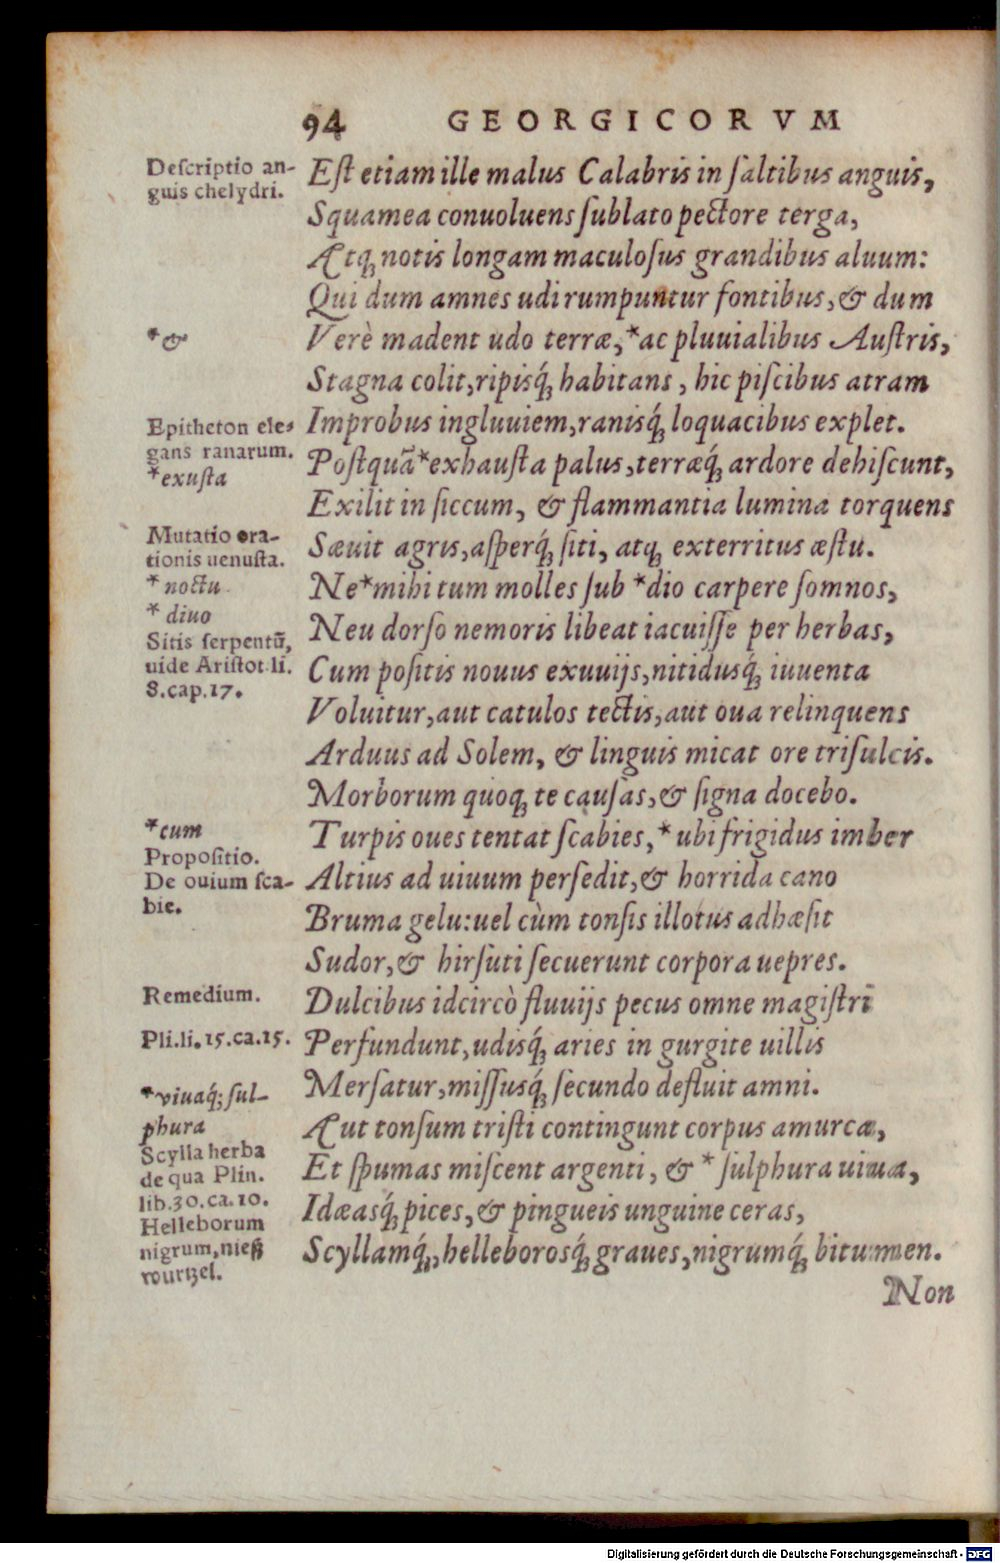 94 GEORGICORVM
Descriptio an-
guis chelydri.
Est etiam ille malus Calabris in saltibus anguis,
Squamea conuoluens sublato pectore terga,
Atq; notis longam maculosus grandibus aluum:
Qui dum amnes udi rumpuntur fontibus, & dum
*&
Verè madent udo terræ, *ac pluuialibus Austris,
Stagna colit, ripisq́; habitans, hic piscibus atram
Epitheton ele-
gans ranarum.
Improbus ingluuiem, ranisq́; loquacibus explet.
*exusta
Postquã *exhausta palus, terræq́; ardore dehiscunt,
Exilit in siccum, & flammantia lumina torquens
Mutatio ora-
tionis uenusta.
Sæuit agris, asperq́; siti, atq; exterritus æstu.
*noctu
*diuo
Ne *mihi tum molles sub *dio carpere somnos,
Sitis serpentũ,
uide Aristot. li.
8. cap. 17.
Neu dorso nemoris libeat iacuisse per herbas,
Cum positis nouus exuuijs, nitidusq́; iuuenta
Voluitur, aut catulos tectis, aut oua relinquens
Arduus ad Solem, & linguis micat ore trisulcis.
Morborum quoq; te causas, & signa docebo.
*cum
Turpis oues tentat scabies, *ubi frigidus imber
Propositio.
De ouium sca-
bie.
Altius ad uiuum persedit, & horrida cano
Bruma gelu: uel cùm tonsis illotus adhæsit
Sudor, & hirsuti secuerunt corpora uepres.
Remedium.
Dulcibus idcircò fluuijs pecus omne magistri
Pli. li. 15. ca. 15.
Perfundunt, udisq́; aries in gurgite uillis
Mersatur, missusq́; secundo defluit amni.
*vivaq́; sul-
phura
Aut tonsum tristi contingunt corpus amurcæ,
Scylla herba
de qua Plin.
lib. 30. ca. 10.
Et spumas miscent argenti, & *sulphura uiua,
Idæasq́; pices, & pingueis unguine ceras,
Helleborum
nigrum, nieß
wurtzel.
Scyllamq́;, helleborosq́; graues, nigrumq́; bitumen.
Non
Digitalisierung gefördert durch die Deutsche Forschungsgemeinschaft - DFG